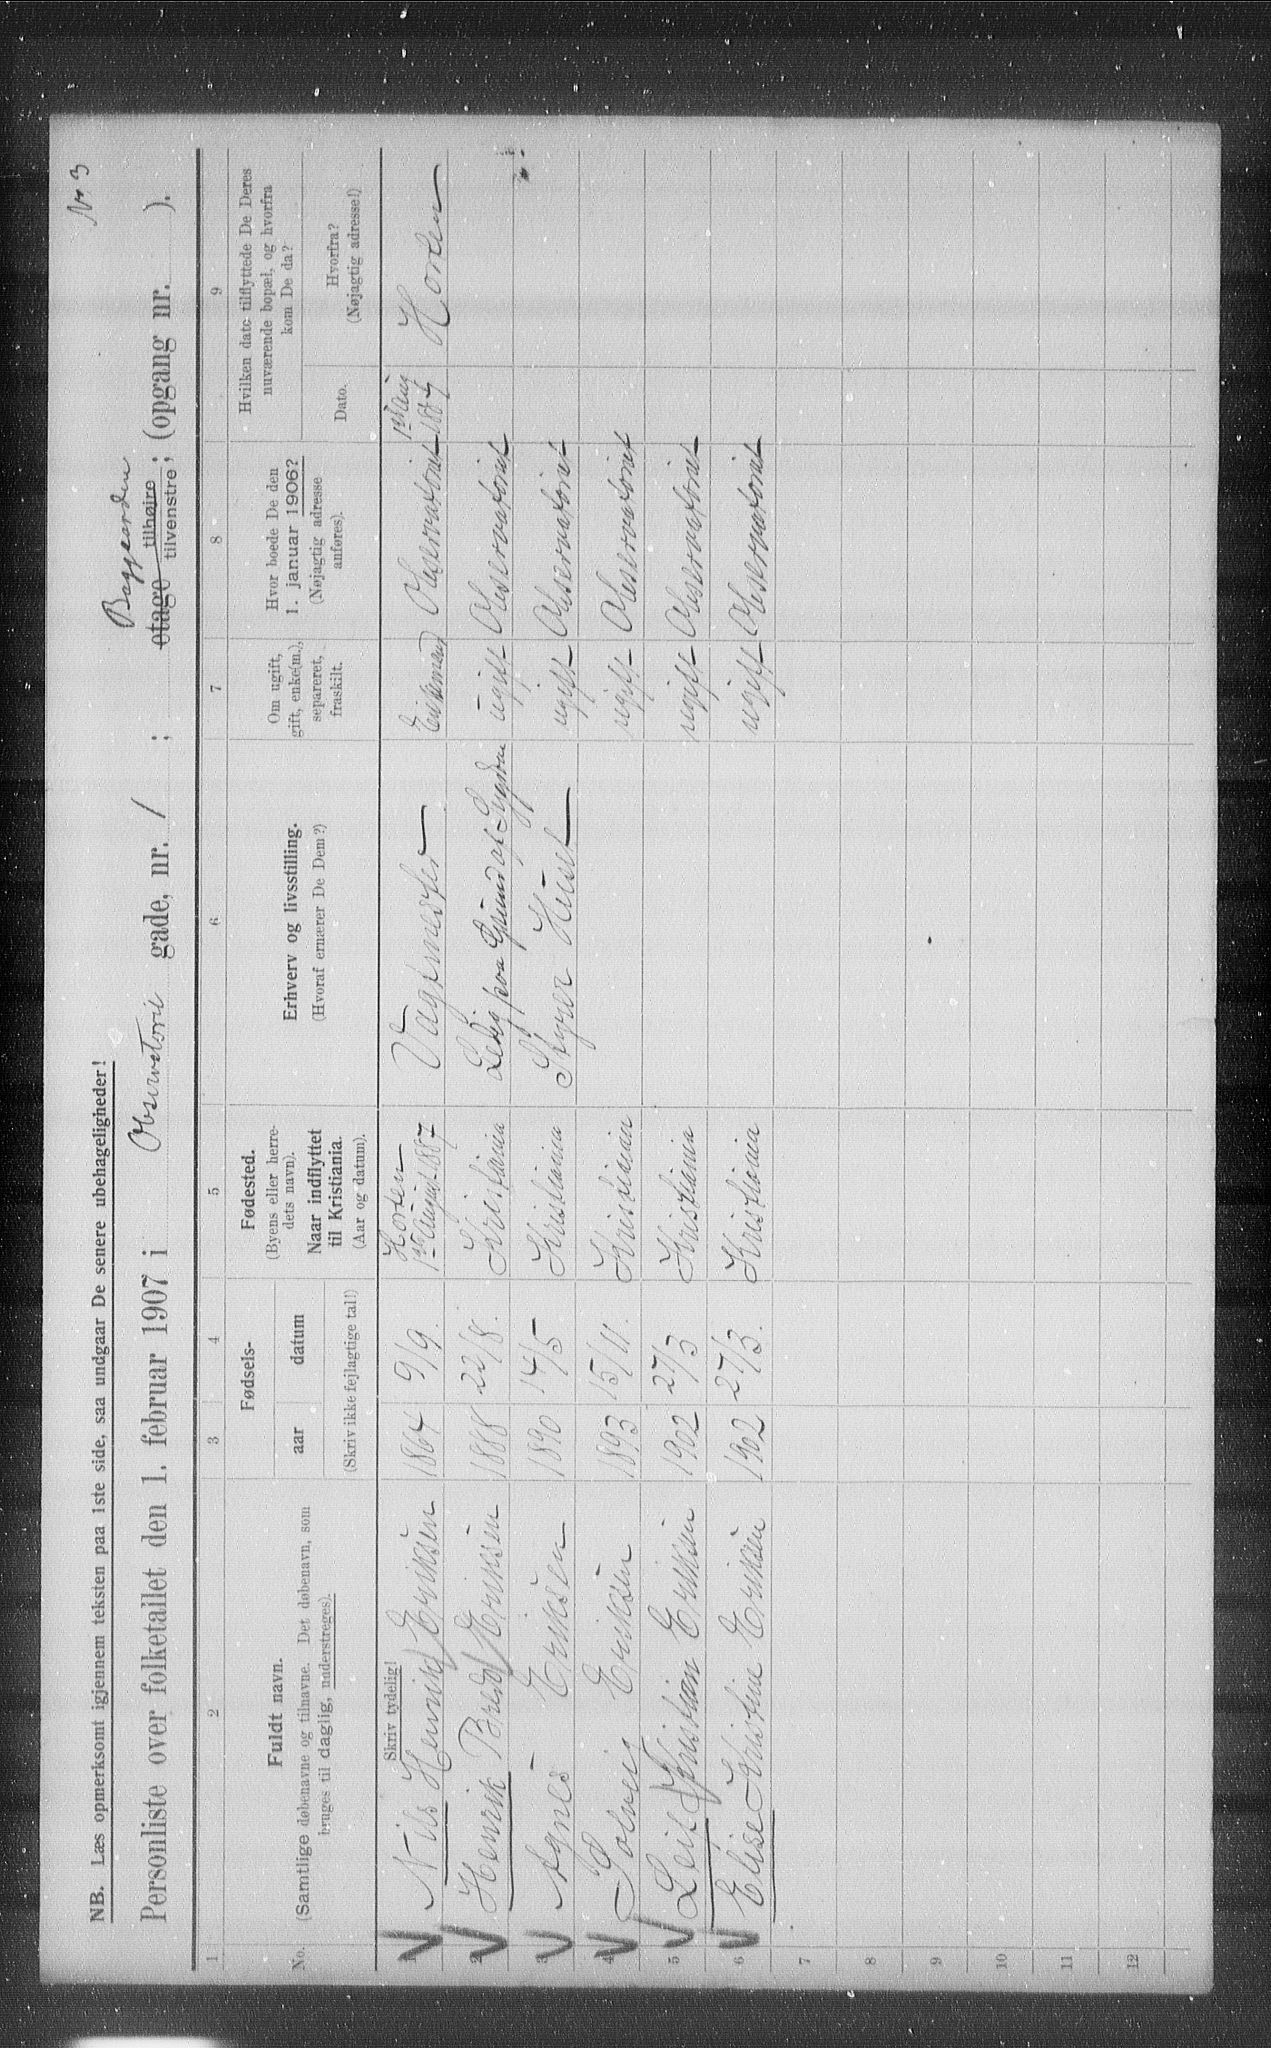 Nr 3
NB. Læs opmerksomt igjennem teksten paa 1ste side, saa undgaar De senere ubehageligheder!
Baggaarden
Personliste over folketallet den 1. februar 1907 i Observatorie gade, nr. 1 ; etage tilhøire tilvenstre ; (opgang nr. ).
1 2 3 4 5 6 7 8 9
No.
Fuldt navn.
(Samtlige døbenavne og tilnavne. Det døbenavn, som
bruges til daglig, understreges).
Skriv tydelig!
Fødsels-
aar datum
(Skriv ikke fejlagtige tal!)
Fødested.
(Byens eller herre-
dets navn).
Naar indflyttet
til Kristiania.
(Aar og datum).
Erhverv og livsstilling.
(Hvoraf ernærer De Dem?)
Om ugift,
gift, enke(m.),
separeret,
fraskilt.
Hvor boede De den
1. januar 1906?
(Nøjagtig adresse
anføres).
Hvilken dato tilflyttede De Deres
nuværende bopæl, og hvorfra
kom De da?
Dato.
Hvorfra?
(Nøjagtig adresse!)
1 Nils Henrik Eriksen 1864 9/9. Horten 1ste August 1887 Vagtmester Enkemand Observatoriet 1ste Aug 1887 Horten
2 Henrik Eriksen 1888 22/8. Kristiania Ledig paa Grund af Sygdom ugift Observatoriet
3 Agnes Eriksen 1890 14/5 Kristiania Styrer Huset ugift Observatoriet
4 Solveig Eriksen 1893 15/11. Kristiania ugift Observatoriet
5 Leif Kristian Eriksen 1902 27/3 Kristiania ugift Observatoriet
6 Elise Kristine Eriksen 1902 27/3. Kristiania ugift Observatoriet
7
8
9
10
11
12